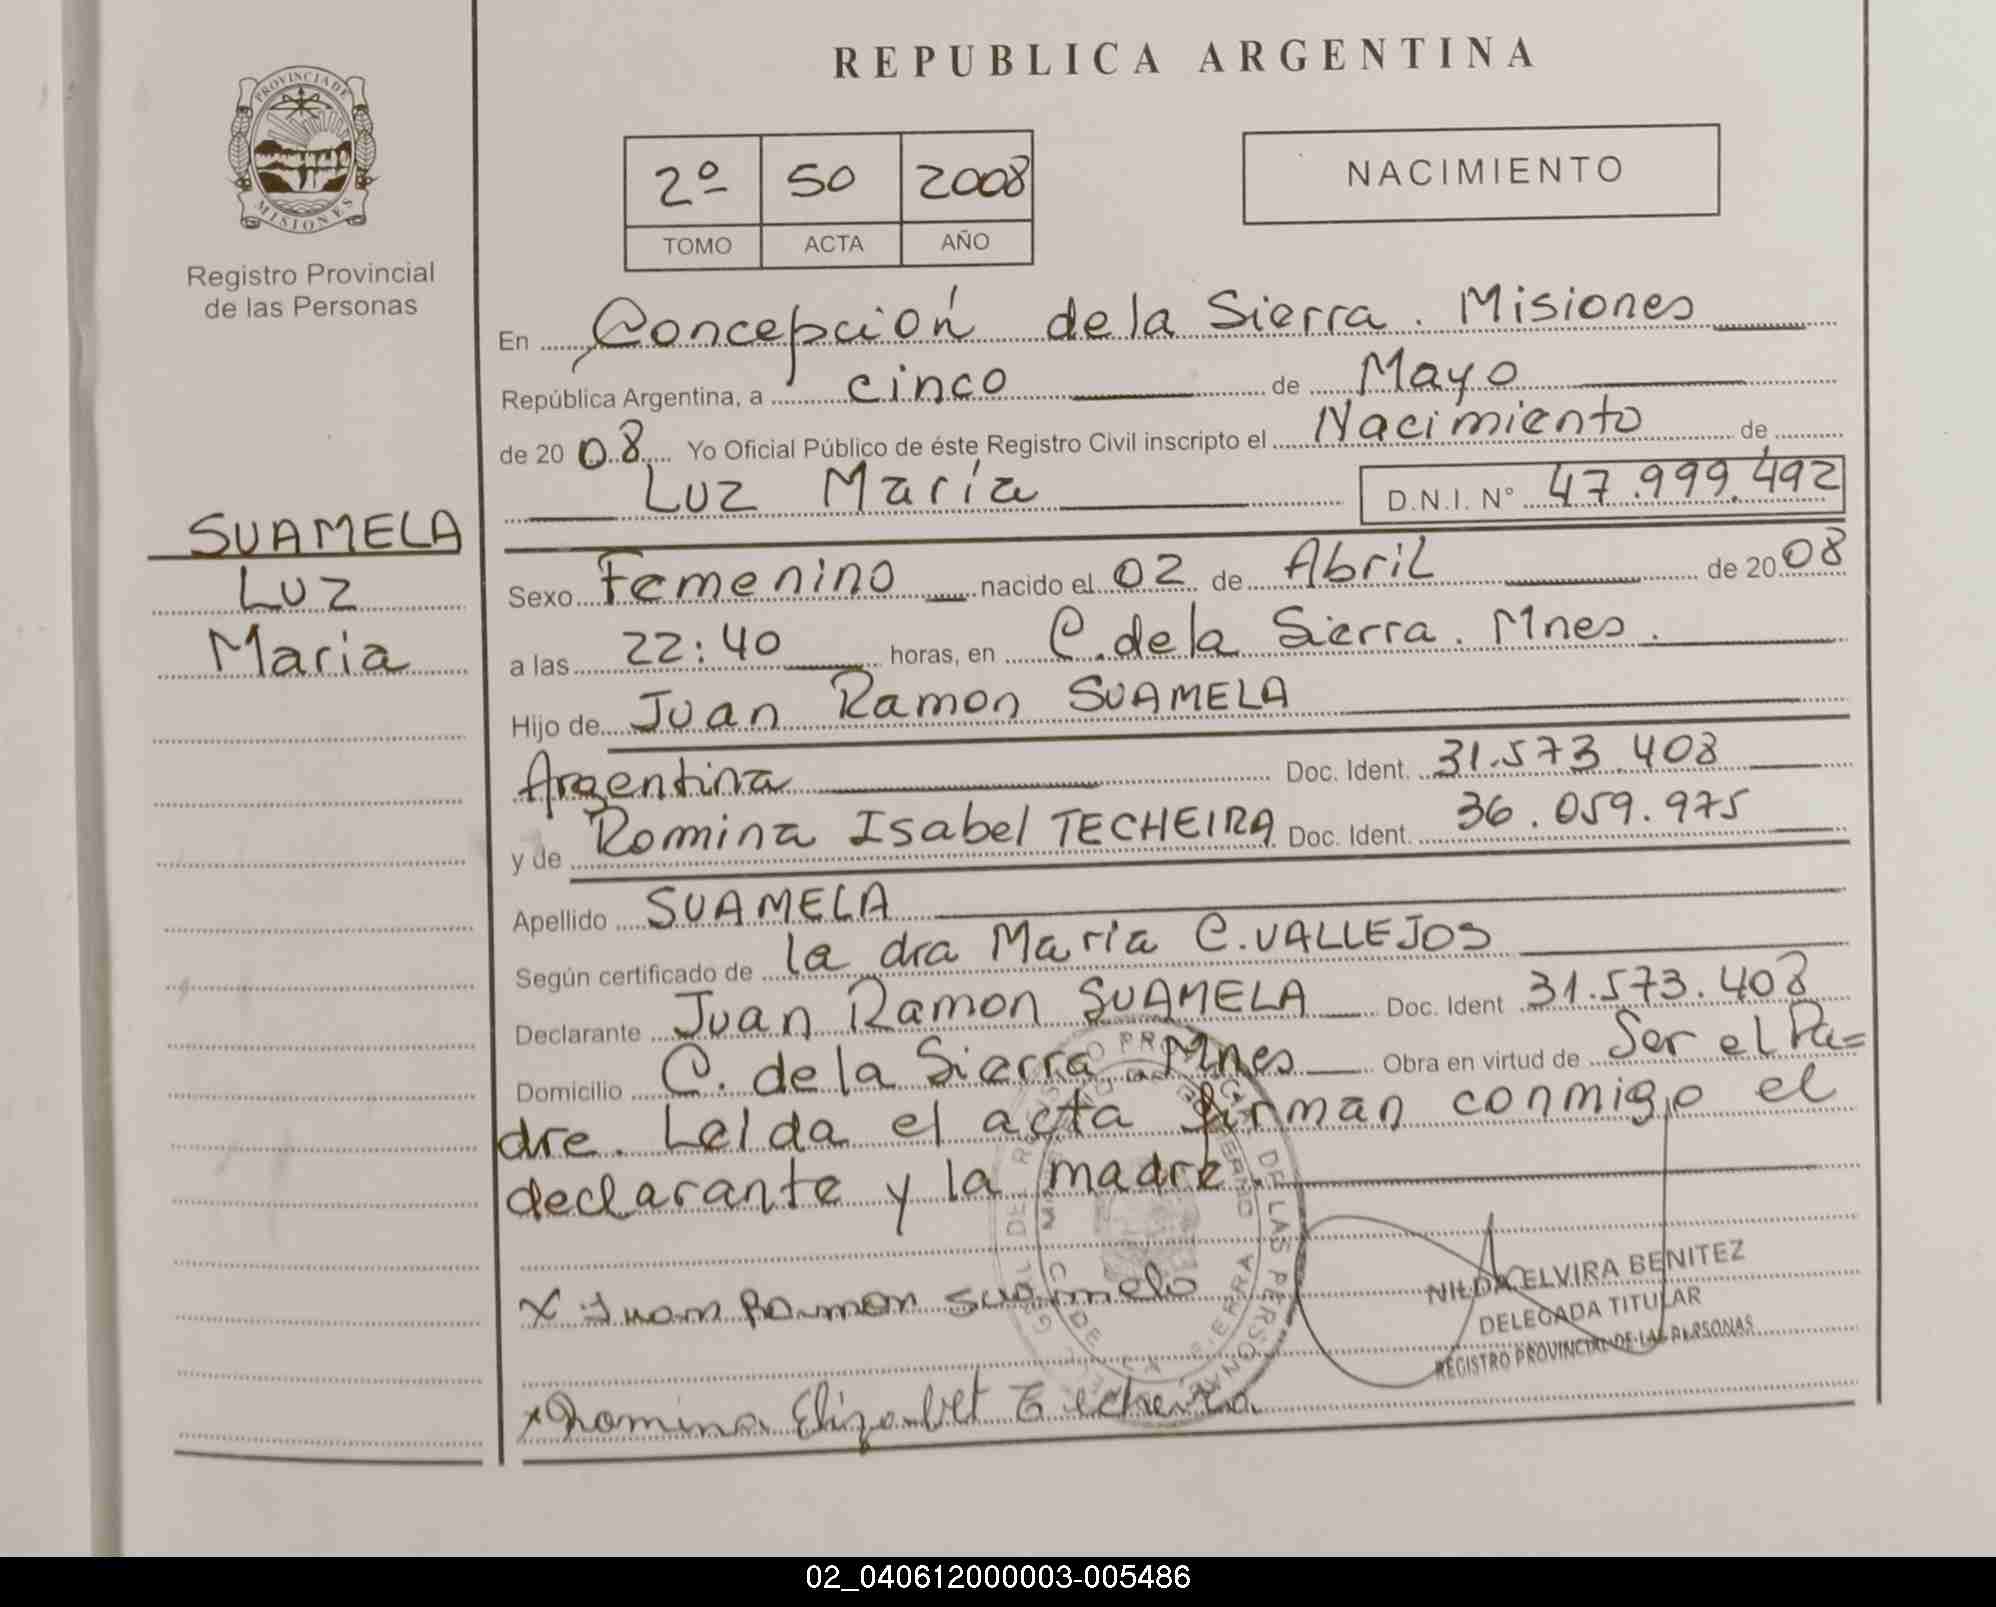 REPUBLICA ARGENTINA
PROVINCIA DE
MISIONES
Registro Provincial
de las Personas
2º 50 2008
TOMO ACTA AÑO
NACIMIENTO
SUAMELA
Luz
Maria
En Concepción de la Sierra. Misiones
República Argentina, a cinco de Mayo
de 20 08 Yo Oficial Público de éste Registro Civil inscripto el Nacimiento de
Luz María D.N.I. Nº 47.999.492
Sexo Femenino nacido el 02 de Abril de 20 08
a las 22:40 horas, en C. de la Sierra. Mnes.
Hijo de Juan Ramon SUAMELA
Argentina Doc. Ident. 31.573.408
y de Romina Isabel TECHEIRA Doc. Ident. 36.059.975
Apellido SUAMELA
Según certificado de la dra Maria C. VALLEJOS
Declarante Juan Ramon SUAMELA Doc. Ident 31.573.408
Domicilio C. de la Sierra Mnes Obra en virtud de Ser el Pa=
dre. Leida el acta firman conmigo el
declarante y la madre.
x Juan Ramon Suamela
x Romina Elizabet Techeira
NILDA ELVIRA BENITEZ
DELEGADA TITULAR
REGISTRO PROVINCIAL DE LAS PERSONAS
02_040612000003-005486